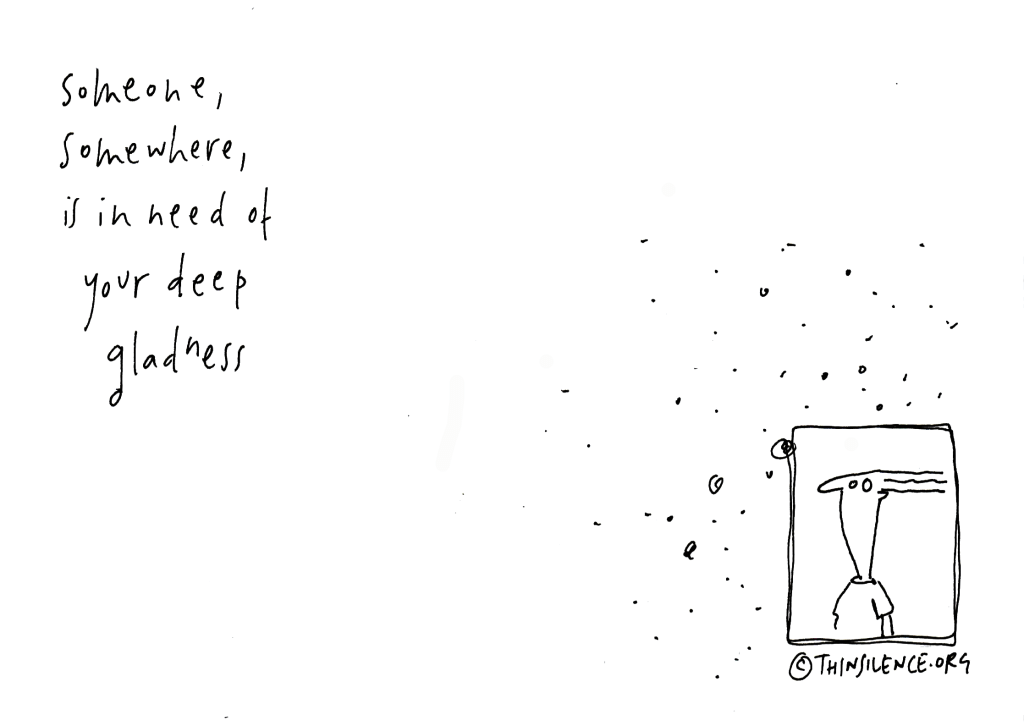 someone,
somewhere,
is in need of
your deep
gladness
© THINSILENCE.ORG